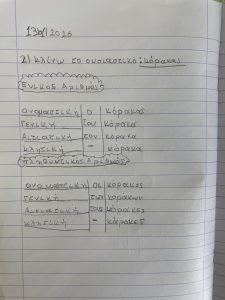 13/1/2026
2) κλίνω το ουσιαστικό: κόρακας
Ενικός Αριθμός
Ονομαστική ο κόρακας
Γενική του κόρακα
Αιτιατική τον κόρακα
Κλητική – κόρακα
Πληθυντικός Αριθμός
Ονομαστική οι κόρακες
Γενική των κοράκων
Αιτιατική τους κόρακες
Κλητική – κόρακες